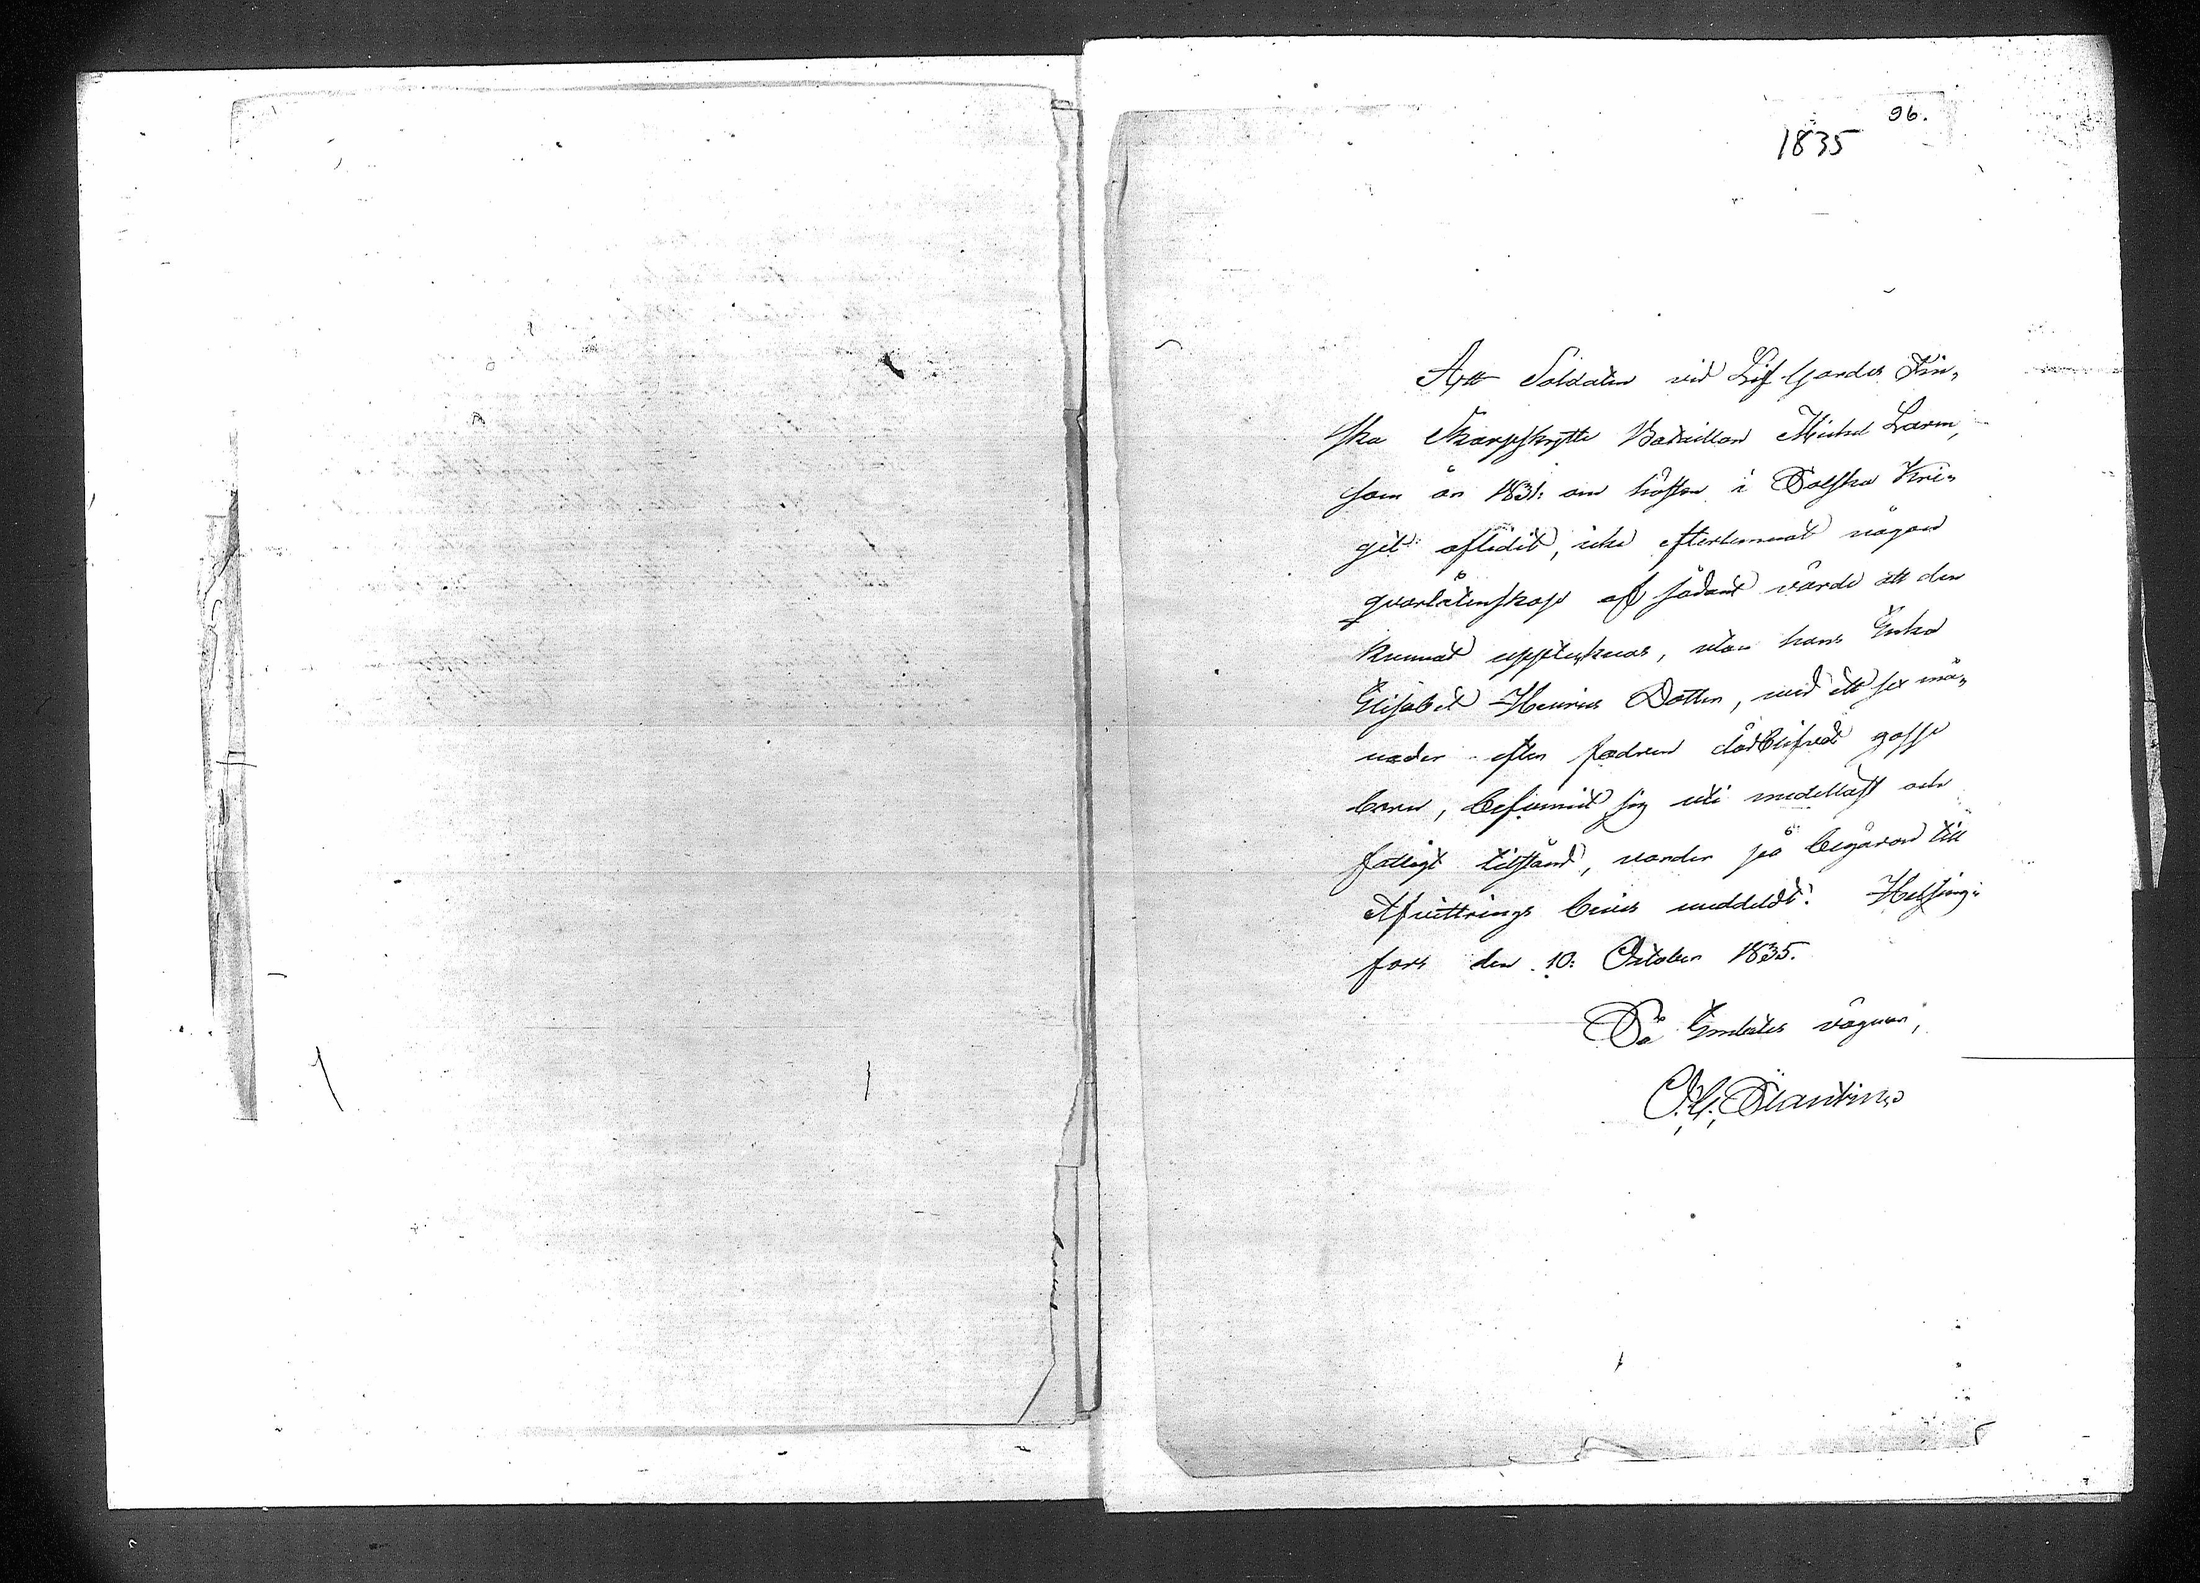 96.
1835
Att Soldaten vid Lif Gardes Fin„
ska Skarpskytte Bataillon Michel Larm,
som år 1831. om hösten i Polska Kri„
get aflidit, icke efterlemnat någon
qvarlåtenskap af sådant värde att den
kunnat upptecknas, utan hans Enka
Elisabet Henrics Dotter, med ett sex må„
nader efter fadren dödblifvit gosse
barn, befunnit sig uti medellöst och
fattigt tillstånd, varder på begäran till
Afvittrings bevis meddeldt. Helsing„
fors den 10. October 1835.
På Embetes vägnar,